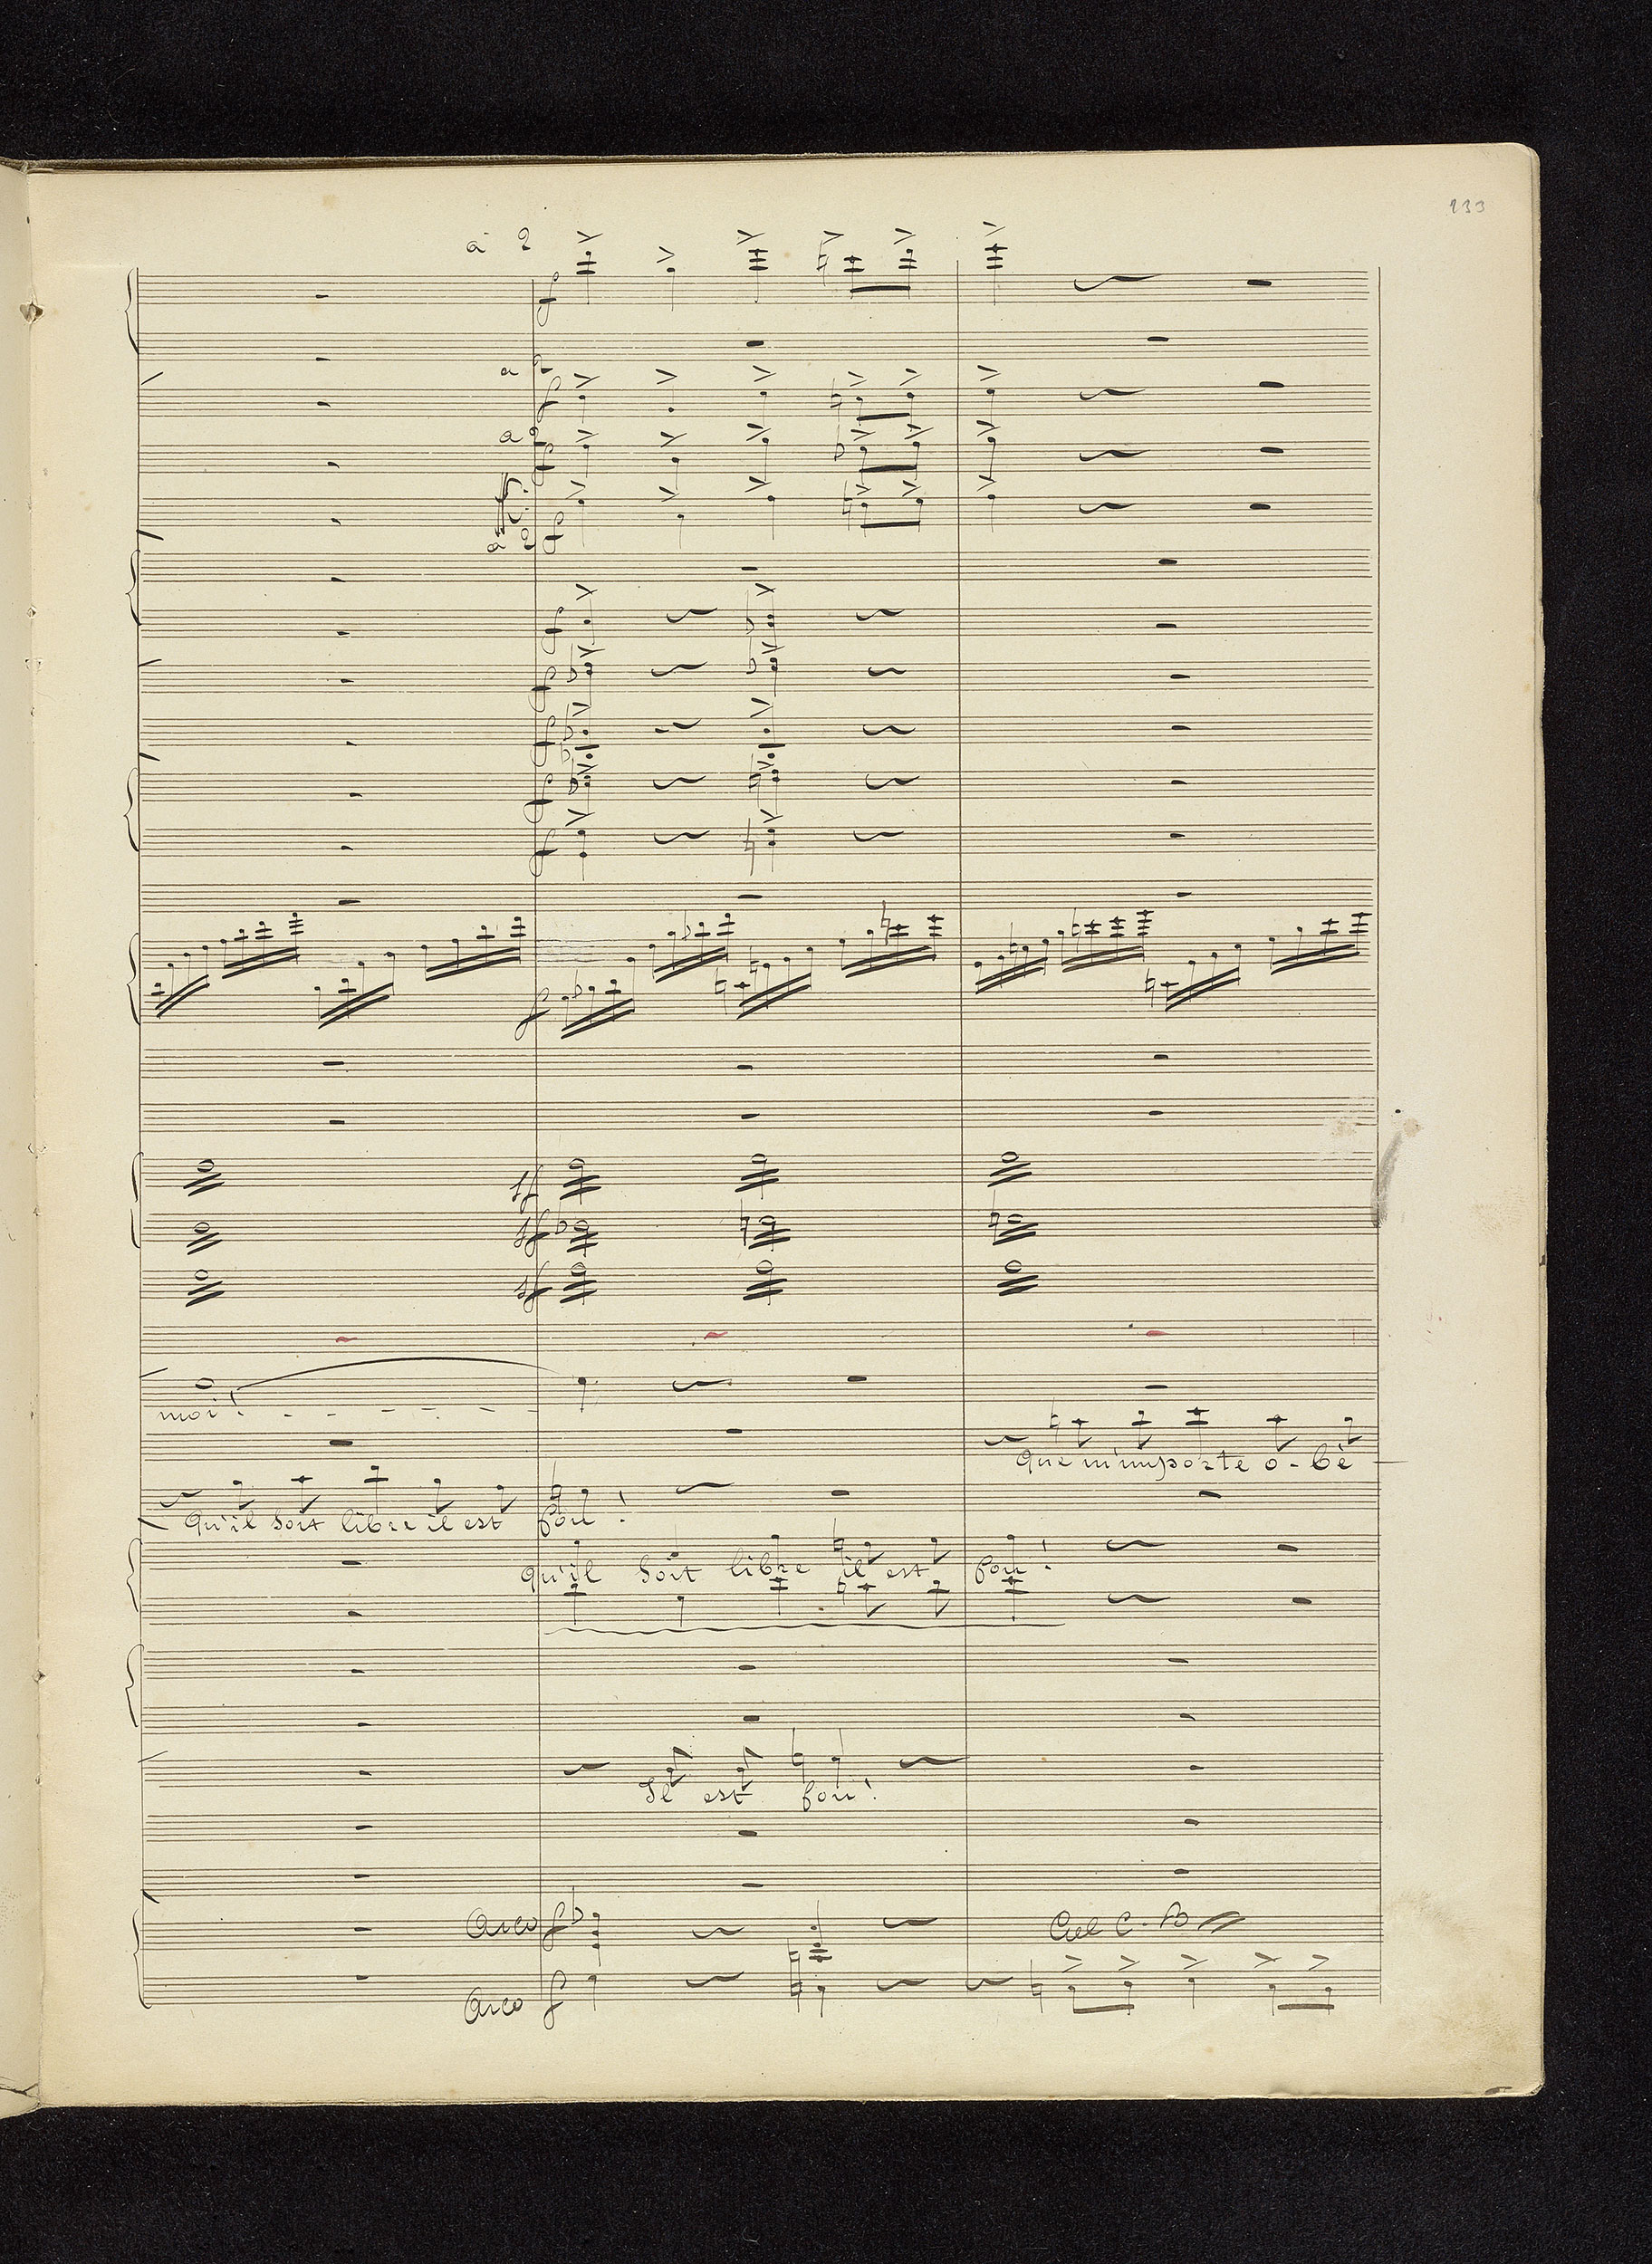 233
à 2
f
a 2
f
a 2
f
a 2 f
f
f
f
f
f
f
sf
sf
sf
moi!
Que m'importe o-bé
Qu'il soit libre il est fou!
Qu'il soit libre il est fou!
Il est fou!
Arco f
Col C.-B
Arco f